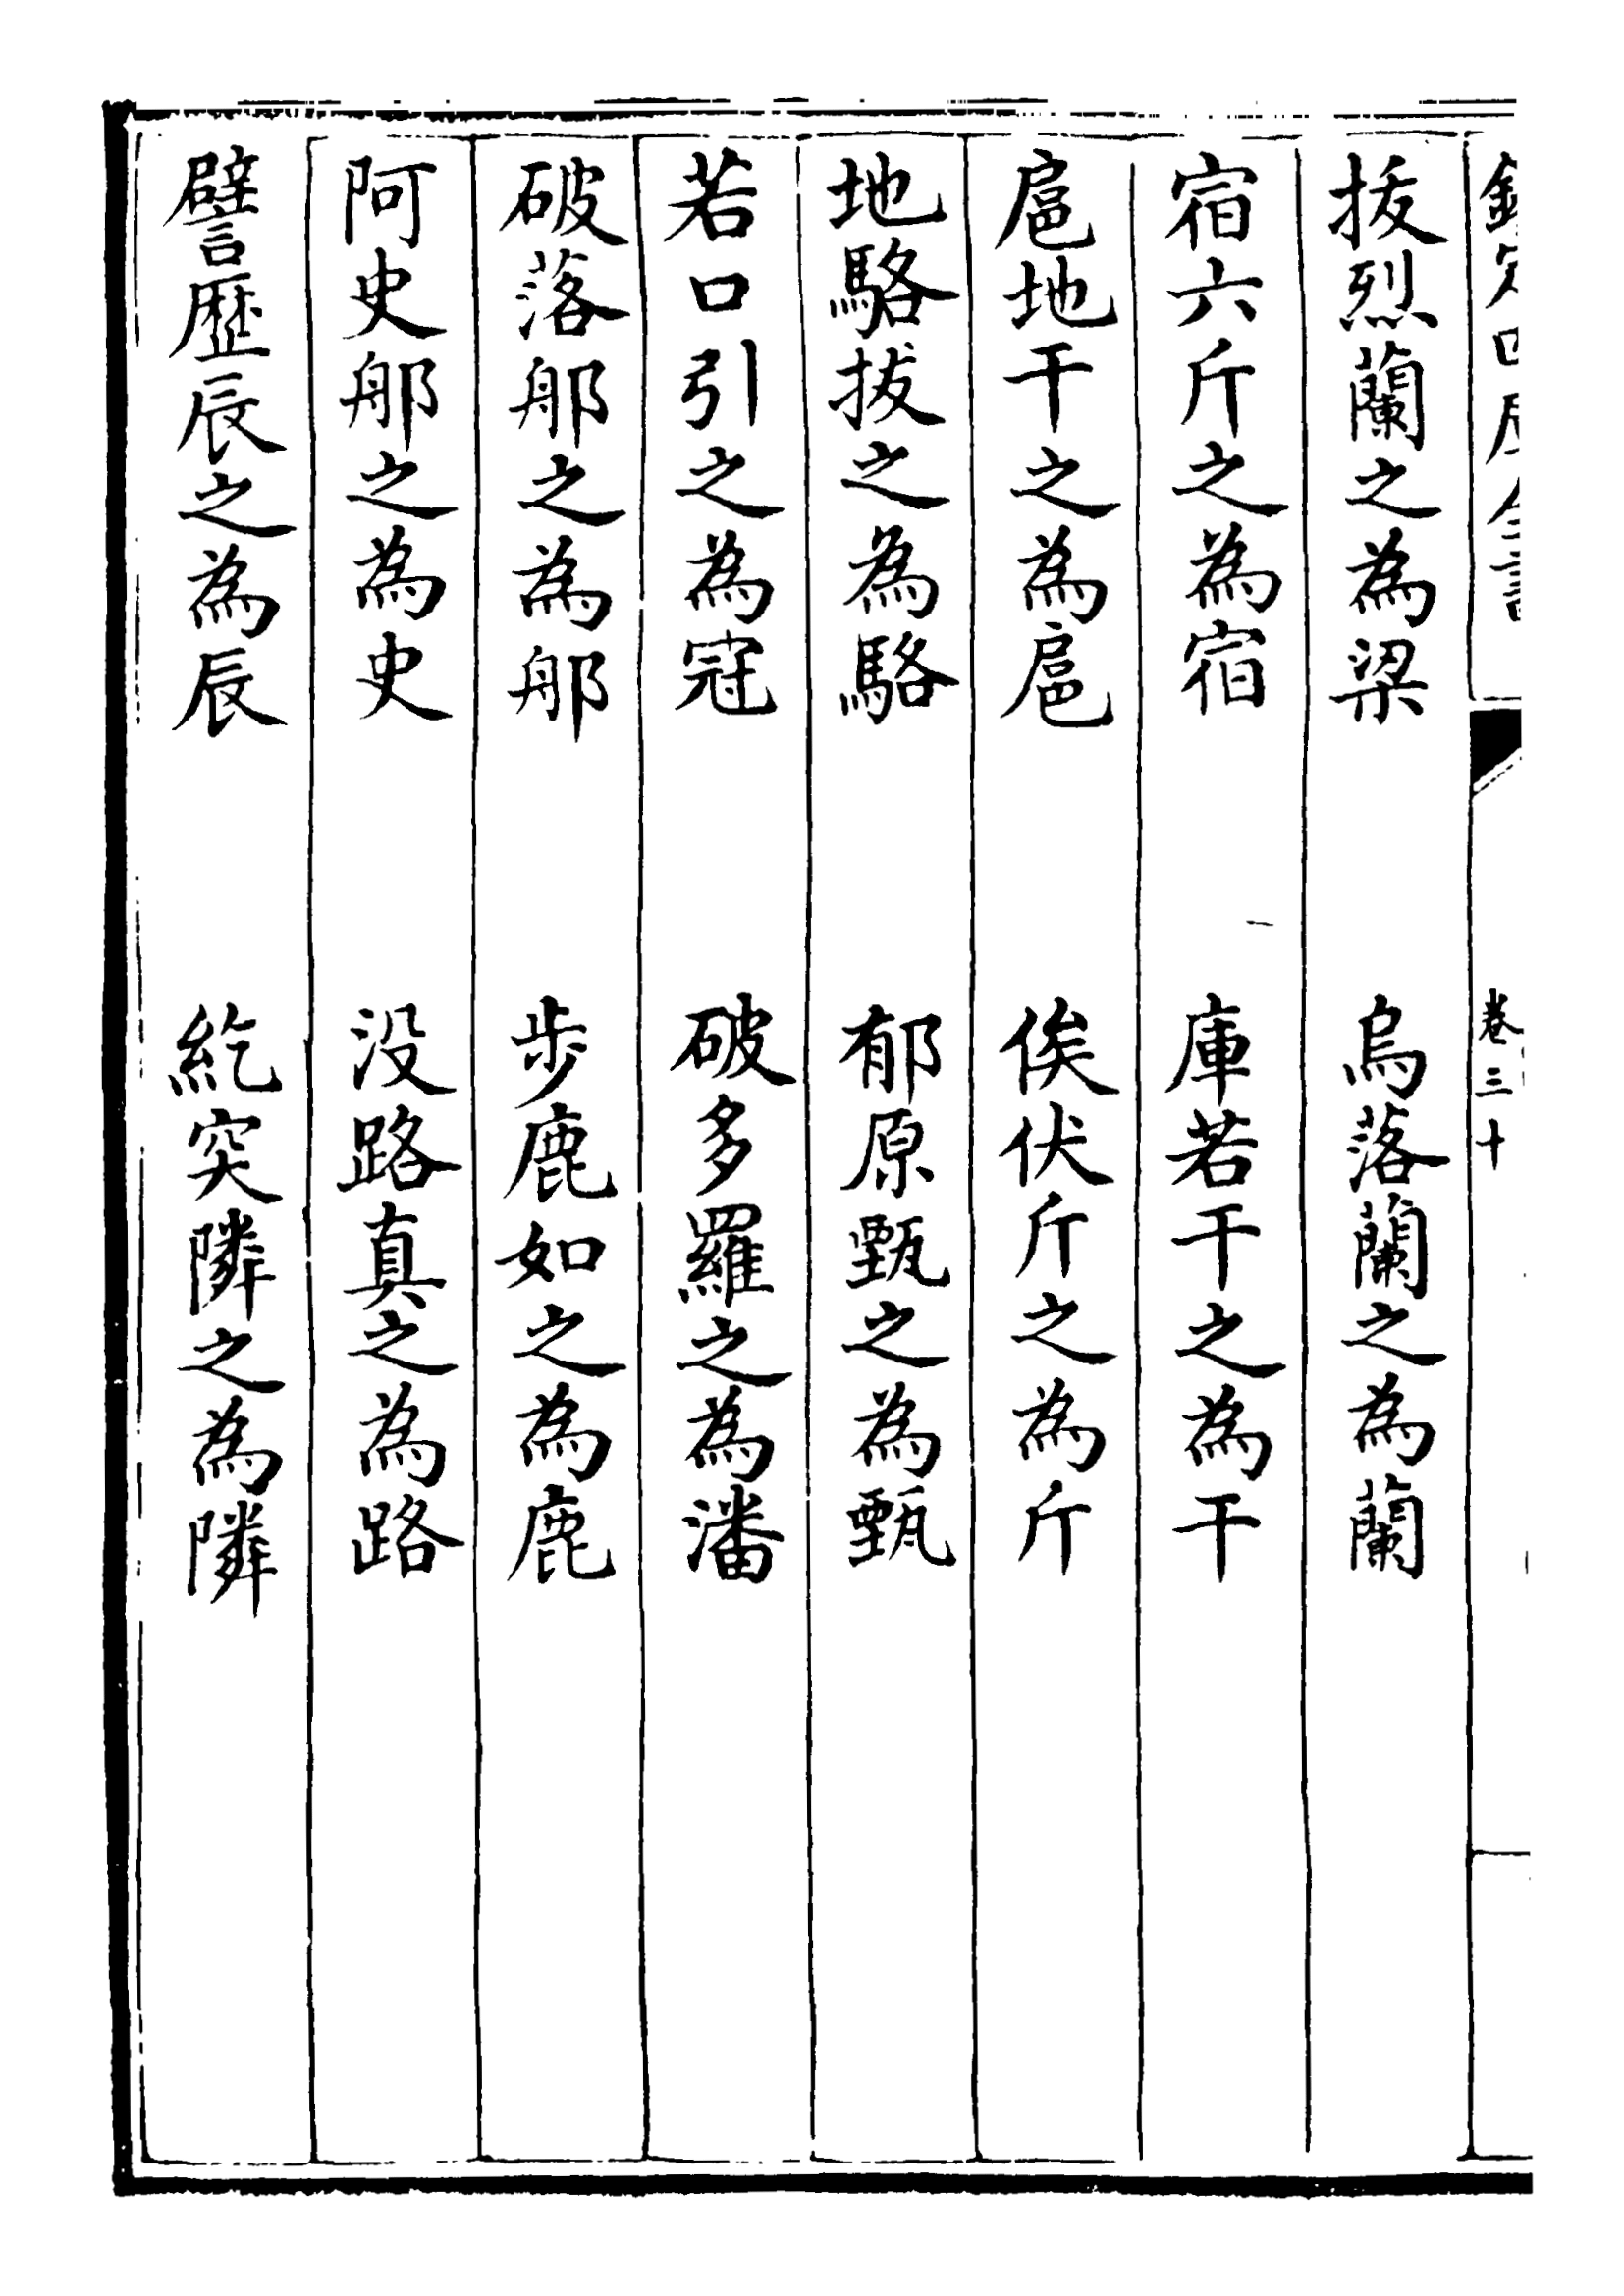 欽定四庫全書 卷三十
拔烈蘭之為梁 烏落蘭之為蘭
宿六斤之為宿 庫若干之為干
扈地干之為扈 俟伏斤之為斤
地駱拔之為駱 郁原甄之為甄
若口引之為冦 破多羅之為潘
破落那之為那 步鹿如之為鹿
阿史那之為史 没路真之為路
譬歷辰之為辰 紇突隣之為隣